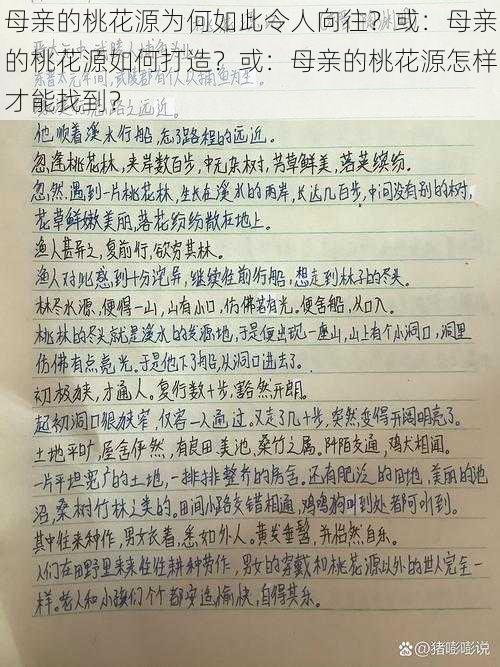 母亲的桃花源为何如此令人向往？或：母亲
的桃花源如何打造？或：母亲的桃花源怎样
才能找到？
他顺着溪水行船，忘了路程的远近。
忽逢桃花林，夹岸数百步，中无杂树，芳草鲜美，落英缤纷。
忽然遇到一片桃花林，生长在溪水的两岸，长达几百步，中间没有别的树，
花草鲜嫩美丽，落花纷纷散在地上。
渔人甚异之，复前行，欲穷其林。
渔人对此感到十分诧异，继续往前行船，想走到林子的尽头。
林尽水源，便得一山，山有小口，仿佛若有光。便舍船，从口入。
桃林的尽头就是溪水的发源地，于是便出现一座山，山上有个小洞口，洞里
仿佛有点亮光。于是他下了船，从洞口进去了。
初极狭，才通人。复行数十步，豁然开朗。
起初洞口很狭窄，仅容一人通过。又走了几十步，突然变得开阔明亮了。
土地平旷，屋舍俨然，有良田美池，桑竹之属。阡陌交通，鸡犬相闻。
一片平坦宽广的土地，一排排整齐的房舍。还有肥沃的田地，美丽的池
沼，桑树竹林之类的。田间小路交错相通，鸡鸣狗叫到处都可听到。
其中往来种作，男女衣着，悉如外人。黄发垂髫，并怡然自乐。
人们在田野里来来往往耕种劳作，男女的穿戴和桃花源以外的世人完全一
样。老人和小孩们个个都安逸愉快，自得其乐。
@猪嘭嘭说